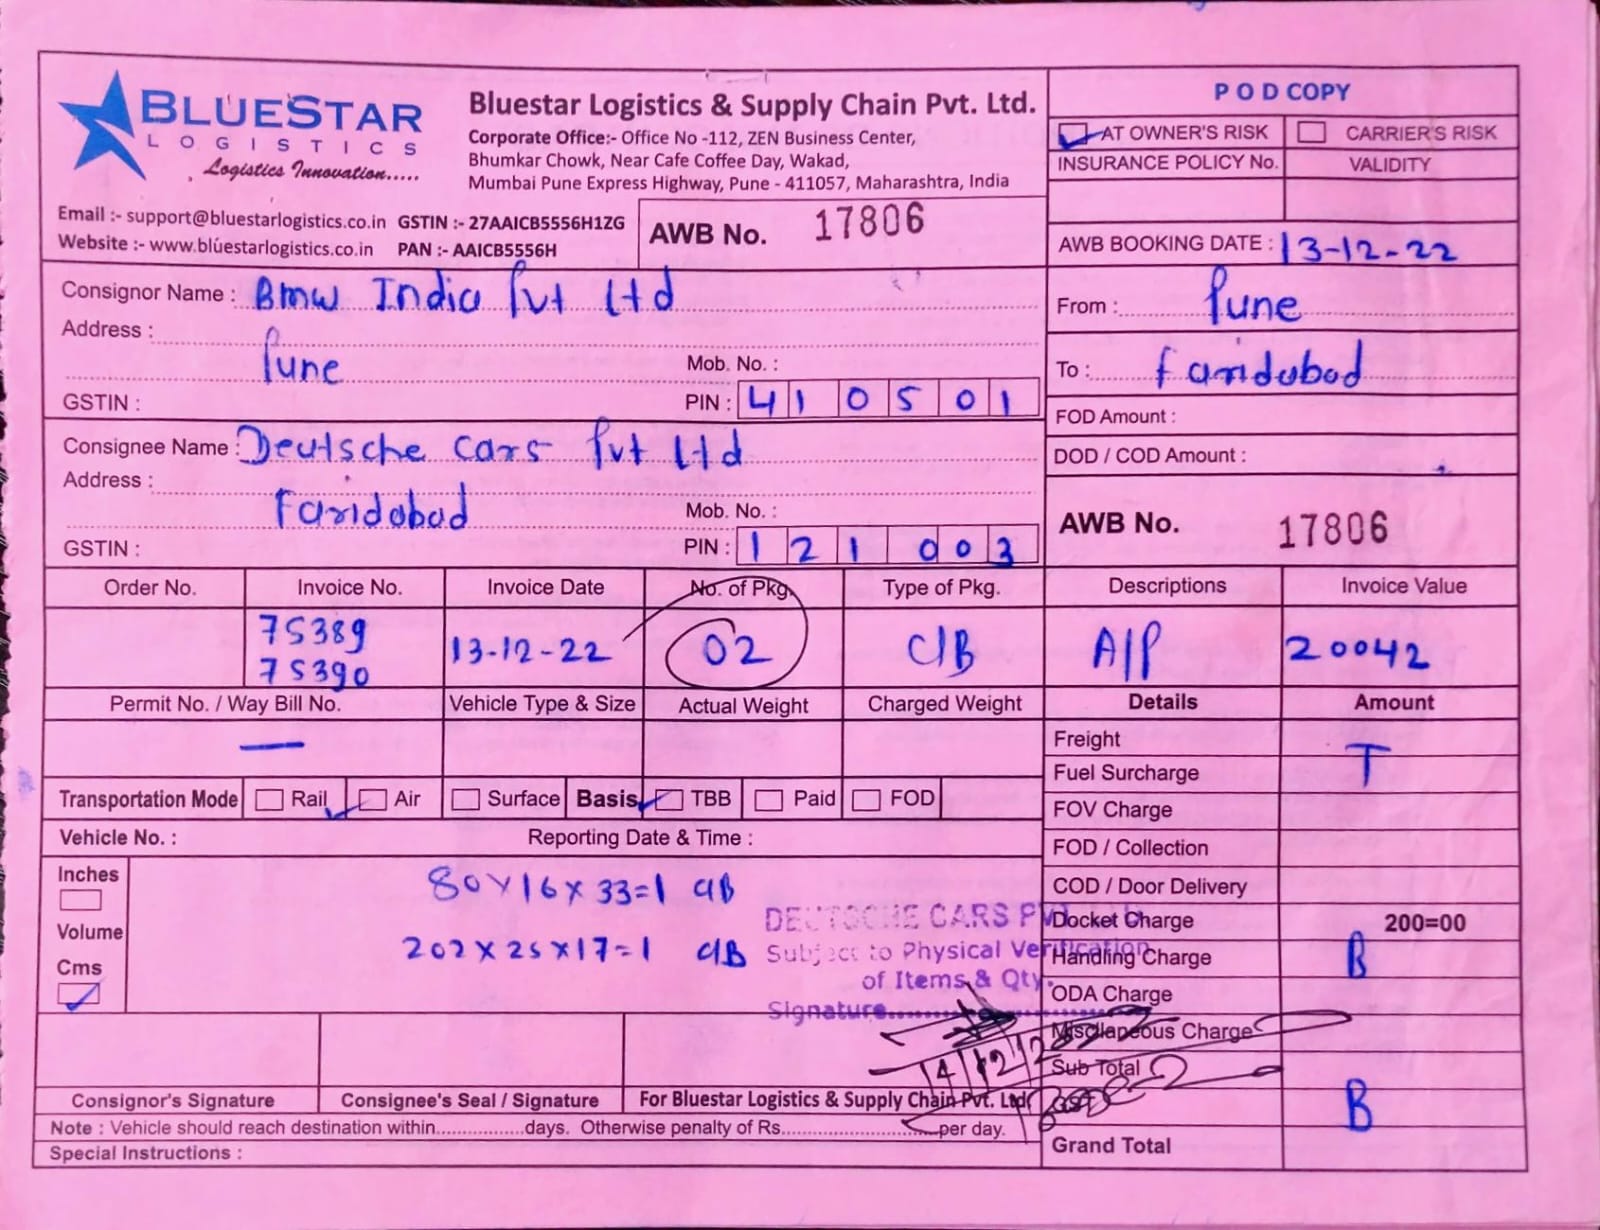 BLUESTAR
LOGISTICS
Logistics Innovation.....
Bluestar Logistics & Supply Chain Pvt. Ltd.
Corporate Office:- Office No -112, ZEN Business Center,
Bhumkar Chowk, Near Cafe Coffee Day, Wakad,
Mumbai Pune Express Highway, Pune - 411057, Maharashtra, India
Email :- support@bluestarlogistics.co.in GSTIN :- 27AAICB5556H1ZG
Website :- www.bluestarlogistics.co.in PAN :- AAICB5556H
AWB No. 17806
POD COPY
AT OWNER'S RISK CARRIER'S RISK
INSURANCE POLICY No. VALIDITY
AWB BOOKING DATE : 13-12-22
Consignor Name : Bmw India Pvt Ltd
Address :
Pune
Mob. No. :
GSTIN :
PIN : 410501
From : Pune
To : Faridabad
FOD Amount :
DOD / COD Amount :
Consignee Name : Deutsche Cars Pvt Ltd
Address :
Faridabad
Mob. No. :
GSTIN :
PIN : 121003
AWB No. 17806
Order No. Invoice No. Invoice Date No. of Pkg. Type of Pkg. Descriptions Invoice Value
75389
75390
13-12-22 02 C/B A/P 20042
Permit No. / Way Bill No. Vehicle Type & Size Actual Weight Charged Weight Details Amount
—
Freight
T
Fuel Surcharge
Transportation Mode Rail Air Surface Basis TBB Paid FOD
FOV Charge
Vehicle No. : Reporting Date & Time :
FOD / Collection
Inches
80 x 16 x 33 = 1 C/B
COD / Door Delivery
Volume
202 x 25 x 17 = 1 C/B
Cms
DEUTSCHE CARS PV
Subject to Physical Verification
of Items & Qty.
Signature
Docket Charge 200=00
Handling Charge
B
ODA Charge
Miscllaneous Charge
Sub Total
14/12/
B
Grand Total
Consignor's Signature Consignee's Seal / Signature For Bluestar Logistics & Supply Chain Pvt. Ltd.
Note : Vehicle should reach destination within...............days. Otherwise penalty of Rs.....................per day.
Special Instructions :